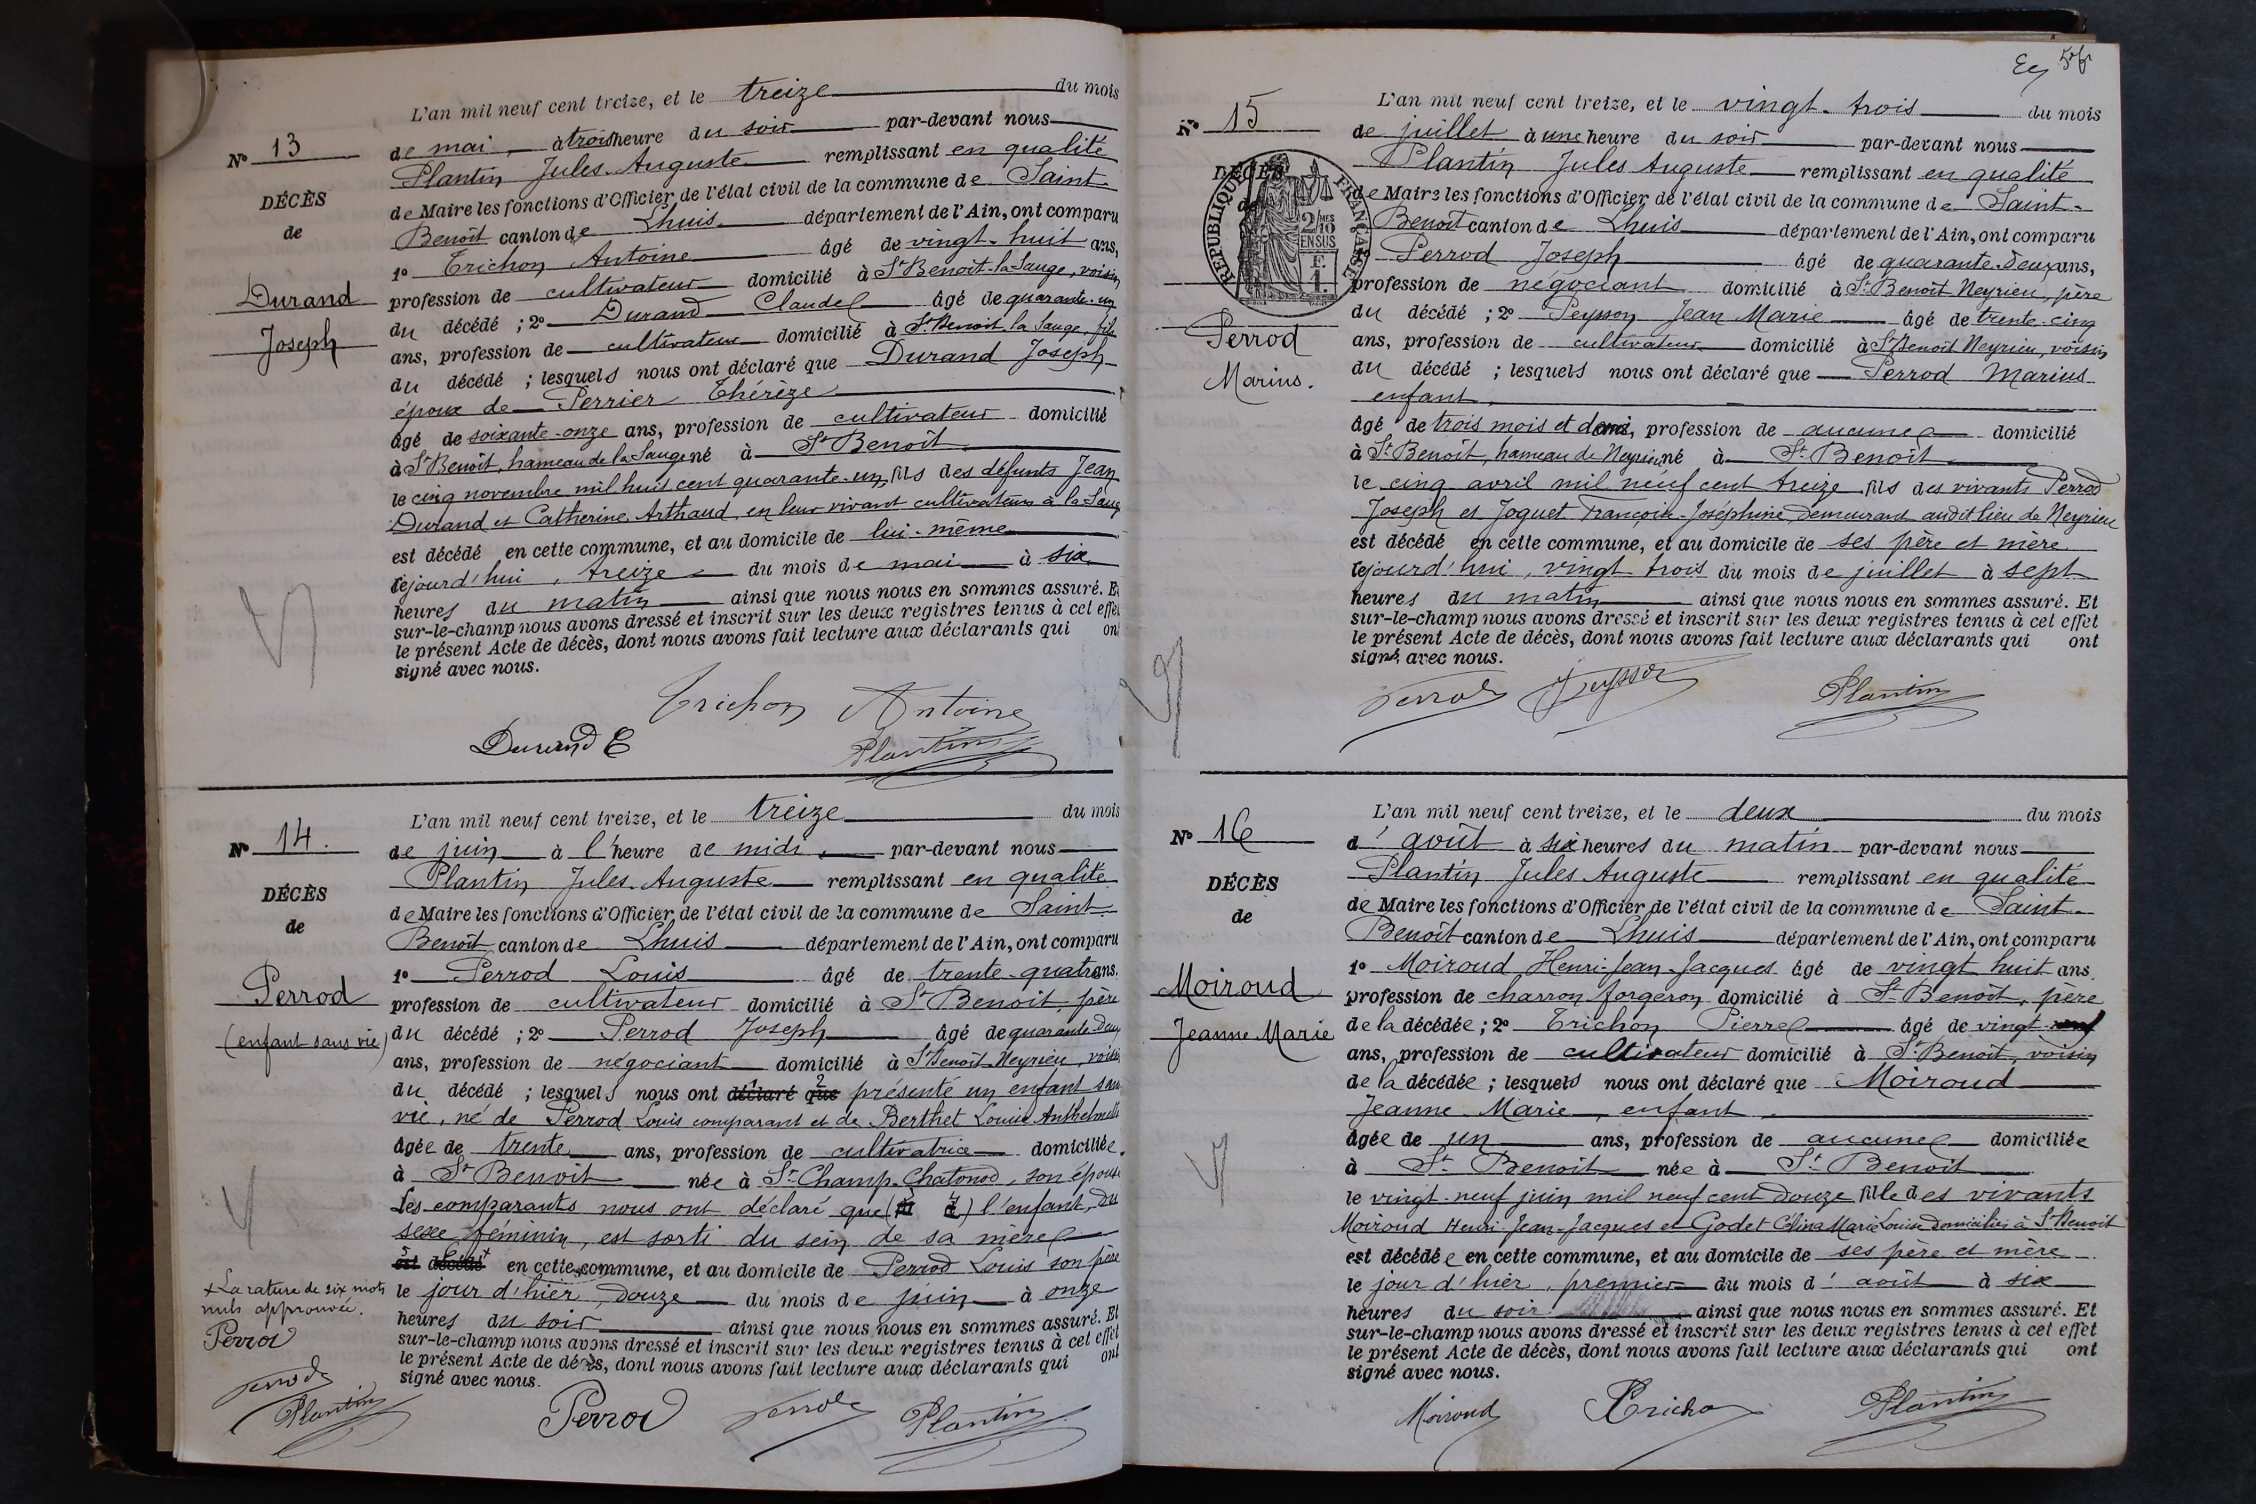 N° 13
DÉCÈS
de
Durand
Joseph
L'an mil neuf cent treize, et le treize du mois
de mai, à trois heure du soir par-devant nous
Plantin Jules Auguste remplissant en qualité
de Maire les fonctions d'Officier de l'état civil de la commune de Saint-
Benoît canton de Lhuis département de l'Ain, ont comparu
1° Trichon Antoine âgé de vingt-huit ans,
profession de cultivateur domicilié à St Benoît-la-Sauge, voisin
du décédé ; 2° Durand Claude âgé de quarante-un
ans, profession de cultivateur domicilié à St Benoît la Sauge, fils
du décédé ; lesquels nous ont déclaré que Durand Joseph
époux de Perrier Thérèze
âgé de soixante-onze ans, profession de cultivateur domicilié
à St Benoît, hameau de la Sauge né à St Benoît
le cinq novembre mil huit cent quarante-un, fils des défunts Jean
Durand et Catherine Arthaud en leur vivant cultivateurs à la Sauge
est décédé en cette commune, et au domicile de lui-même
le jourd'hui, treize du mois de mai à six
heures du matin ainsi que nous nous en sommes assuré. Et
sur-le-champ nous avons dressé et inscrit sur les deux registres tenus à cet effet
le présent Acte de décès, dont nous avons fait lecture aux déclarants qui ont
signé avec nous.
Trichon Antoine
Durand C Plantin
N° 14.
DÉCÈS
de
Perrod
(enfant sans vie)
L'an mil neuf cent treize, et le treize du mois
de juin à l'heure de midi, par-devant nous
Plantin Jules Auguste remplissant en qualité
de Maire les fonctions d'Officier de l'état civil de la commune de Saint-
Benoît canton de Lhuis département de l'Ain, ont comparu
1° Perrod Louis âgé de trente-quatre ans.
profession de cultivateur domicilié à St Benoît, père
du décédé ; 2° Perrod Joseph âgé de quarante-deux
ans, profession de négociant domicilié à St Benoît-Neyrieu, voisin
du décédé ; lesquels nous ont déclaré que présenté un enfant sans
vie, né de Perrod Louis comparant et de Berthet Louise Anthelmette
âgée de trente ans, profession de cultivatrice domiciliée.
à St Benoît née à St Champ-Chatonod, son épouse
Les comparants nous ont déclaré que l'enfant, du
sexe féminin, est sorti du sein de sa mère
est décédé en cette commune, et au domicile de Perrod Louis son père
le jour d'hier, douze du mois de juin à onze
heures du soir ainsi que nous nous en sommes assuré. Et
sur-le-champ nous avons dressé et inscrit sur les deux registres tenus à cet effet
le présent Acte de décès, dont nous avons fait lecture aux déclarants qui ont
signé avec nous.
+ La rature de six mots
nuls approuvée.
Perrod
Perrod
Plantin
Perrod Perrod Plantin
56
N° 15
DÉCÈS
de
RÉPUBLIQUE FRANÇAISE
2/10 MES
EN SUS
F.
1.
Perrod
Marius.
L'an mil neuf cent treize, et le vingt-trois du mois
de juillet à une heure du soir par-devant nous
Plantin Jules Auguste remplissant en qualité
de Maire les fonctions d'Officier de l'état civil de la commune de Saint-
Benoît canton de Lhuis département de l'Ain, ont comparu
Perrod Joseph âgé de quarante-deux ans,
profession de négociant domicilié à St Benoît Neyrieu, père
du décédé ; 2° Peysson Jean Marie âgé de trente-cinq
ans, profession de cultivateur domicilié à St Benoît Neyrieu, voisin
du décédé ; lesquels nous ont déclaré que Perrod Marius
enfant
âgé de trois mois et demi, profession de aucune domicilié
à St Benoît, hameau de Neyrieu né à St Benoît
le cinq avril mil neuf cent treize fils des vivants Perrod
Joseph et Joguet Françoise-Joséphine, demeurant audit lieu de Neyrieu
est décédé en cette commune, et au domicile de ses père et mère
le jourd'hui, vingt trois du mois de juillet à sept
heures du matin ainsi que nous nous en sommes assuré. Et
sur-le-champ nous avons dressé et inscrit sur les deux registres tenus à cet effet
le présent Acte de décès, dont nous avons fait lecture aux déclarants qui ont
signé avec nous.
Perrod Peysson Plantin
N° 16
DÉCÈS
de
Moiroud
Jeanne Marie
L'an mil neuf cent treize, et le deux du mois
d'août à six heures du matin par-devant nous
Plantin Jules Auguste remplissant en qualité
de Maire les fonctions d'Officier de l'état civil de la commune de Saint-
Benoît canton de Lhuis département de l'Ain, ont comparu
1° Moiroud Henri-Jean-Jacques âgé de vingt huit ans.
profession de charron forgeron domicilié à St Benoît, père
de la décédée ; 2° Trichon Pierre âgé de vingt-neuf
ans, profession de cultivateur domicilié à St Benoît, voisin
de la décédée ; lesquels nous ont déclaré que Moiroud
Jeanne-Marie, enfant
âgée de un ans, profession de aucune domiciliée
à St Benoît née à St Benoît
le vingt-neuf juin mil neuf cent douze fille des vivants
Moiroud Henri-Jean-Jacques et Godet Marie Louise domiciliés à St Benoît
est décédée en cette commune, et au domicile de ses père et mère
le jour d'hier, premier du mois d'août à six
heures du soir ainsi que nous nous en sommes assuré. Et
sur-le-champ nous avons dressé et inscrit sur les deux registres tenus à cet effet
le présent Acte de décès, dont nous avons fait lecture aux déclarants qui ont
signé avec nous.
Moiroud Trichon Plantin